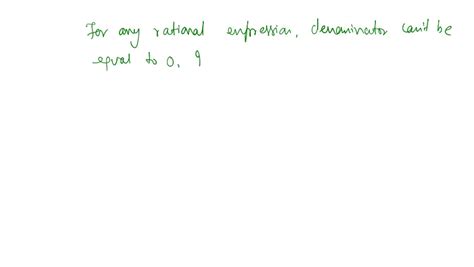 For any rational expression, denominator can't be
equal to 0, 9